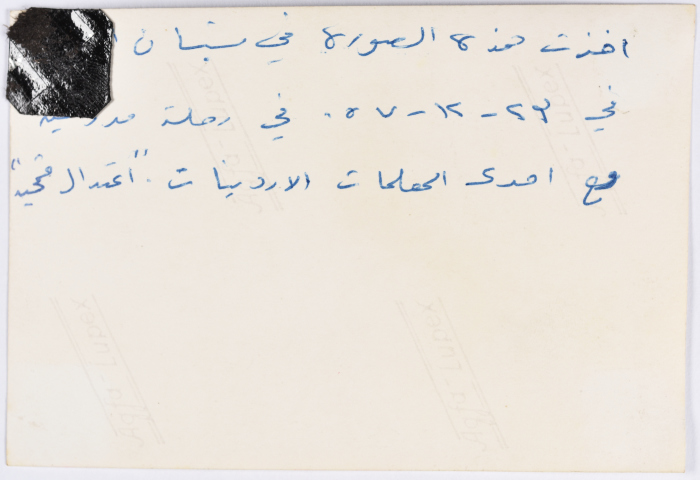 اخذت هذه الصورة في ستان
في ٢٣-١٢-٥٧. في رحلة مدرسية
مع احدى المعلمات الاردنيات. "اعتدال قمحية"
Agfa-Lupex
Agfa-Lupex
Agfa-Lupex
Agfa-Lupex